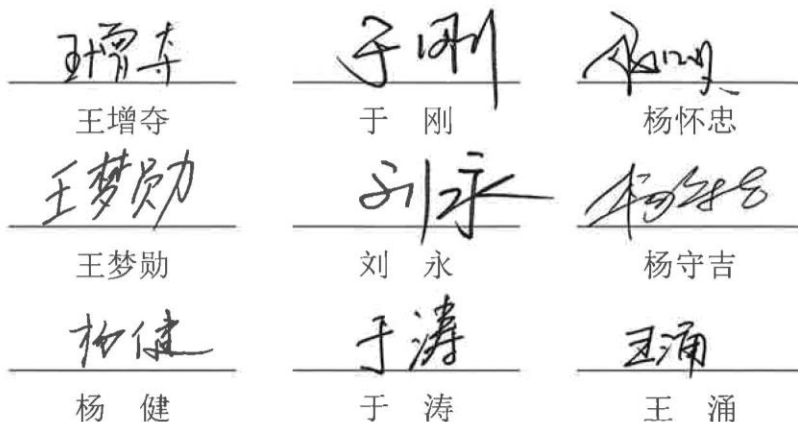 王增夺 于刚
王增夺 于 刚 杨怀忠
王梦勋 刘永 杨守吉
王梦勋 刘 永 杨守吉
杨健 于涛 王涌
杨 健 于 涛 王 涌